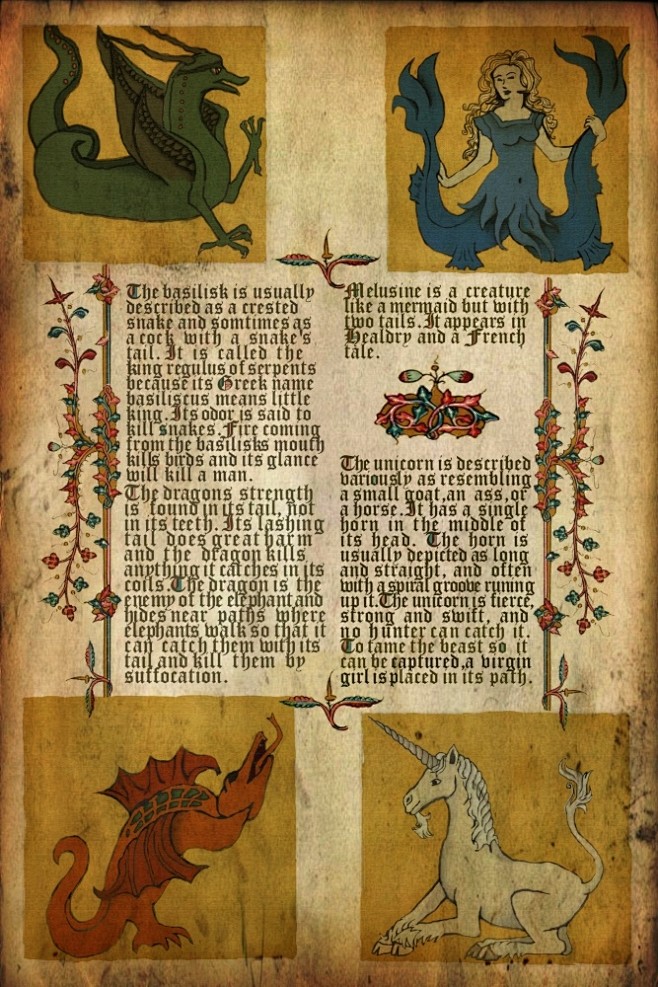 The basilisk is usually
described as a crested
snake and somtimes as
a cock with a snake's
tail. It is called the
king regulus of serpents
because its Greek name
basiliscus means little
king. Its odor is said to
kill snakes. Fire coming
from the basilisks mouth
kills birds and its glance
will kill a man.
The dragons strength
is found in its tail, not
in its teeth. Its lashing
tail does great harm
and the dragon kills
anything it catches in its
coils. The dragon is the
enemy of the elephant and
hides near paths where
elephants walk so that it
can catch them with its
tail and kill them by
suffocation.
Melusine is a creature
like a mermaid but with
two tails. It appears in
Healdry and a French
tale.
The unicorn is described
variously as resembling
a small goat, an ass, or
a horse. It has a single
horn in the middle of
its head. The horn is
usually depicted as long
and straight, and often
with a spiral groove runing
up it. The unicorn is fierce,
strong and swift, and
no hunter can catch it.
To tame the beast so it
can be captured, a virgin
girl is placed in its path.